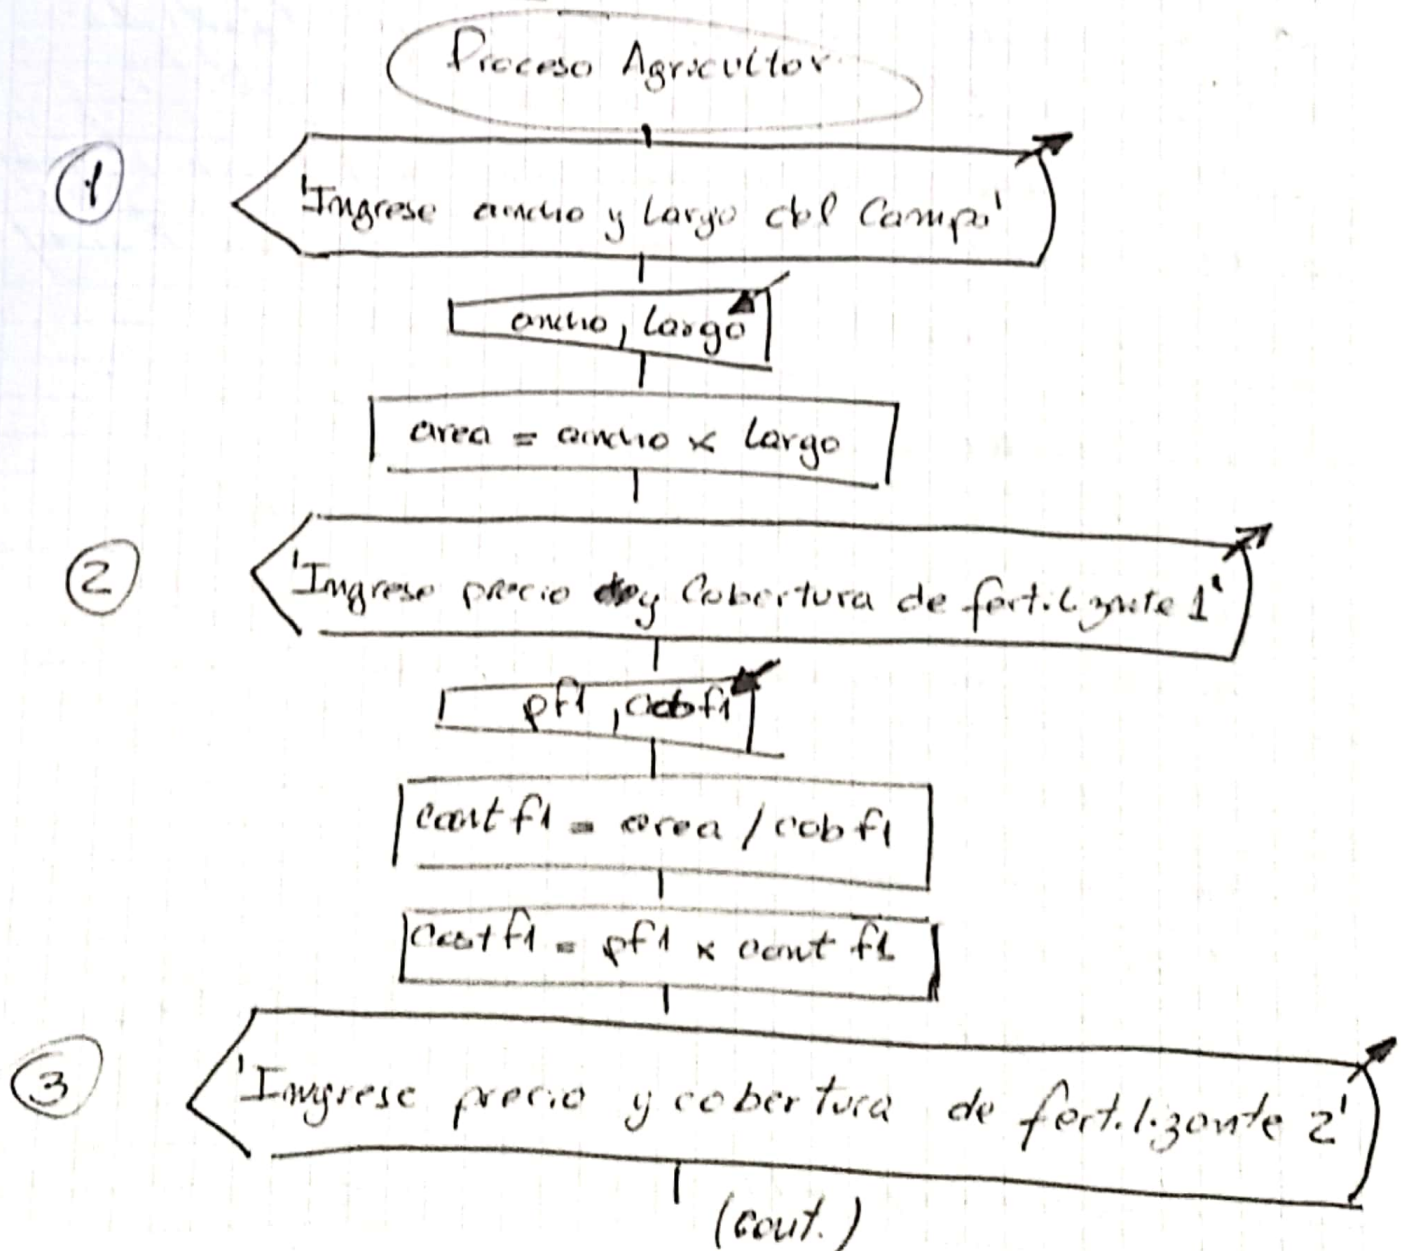 Proceso Agricultor
1
'Ingrese ancho y Largo del Campo'
ancho, Largo
area = ancho x Largo
2
'Ingrese precio y Cobertura de fertilizante 1'
pf1, cobf1
cant f1 = area / cob f1
cost f1 = pf1 x cant f1
3
'Ingrese precio y cobertura de fertilizante 2'
(cont.)